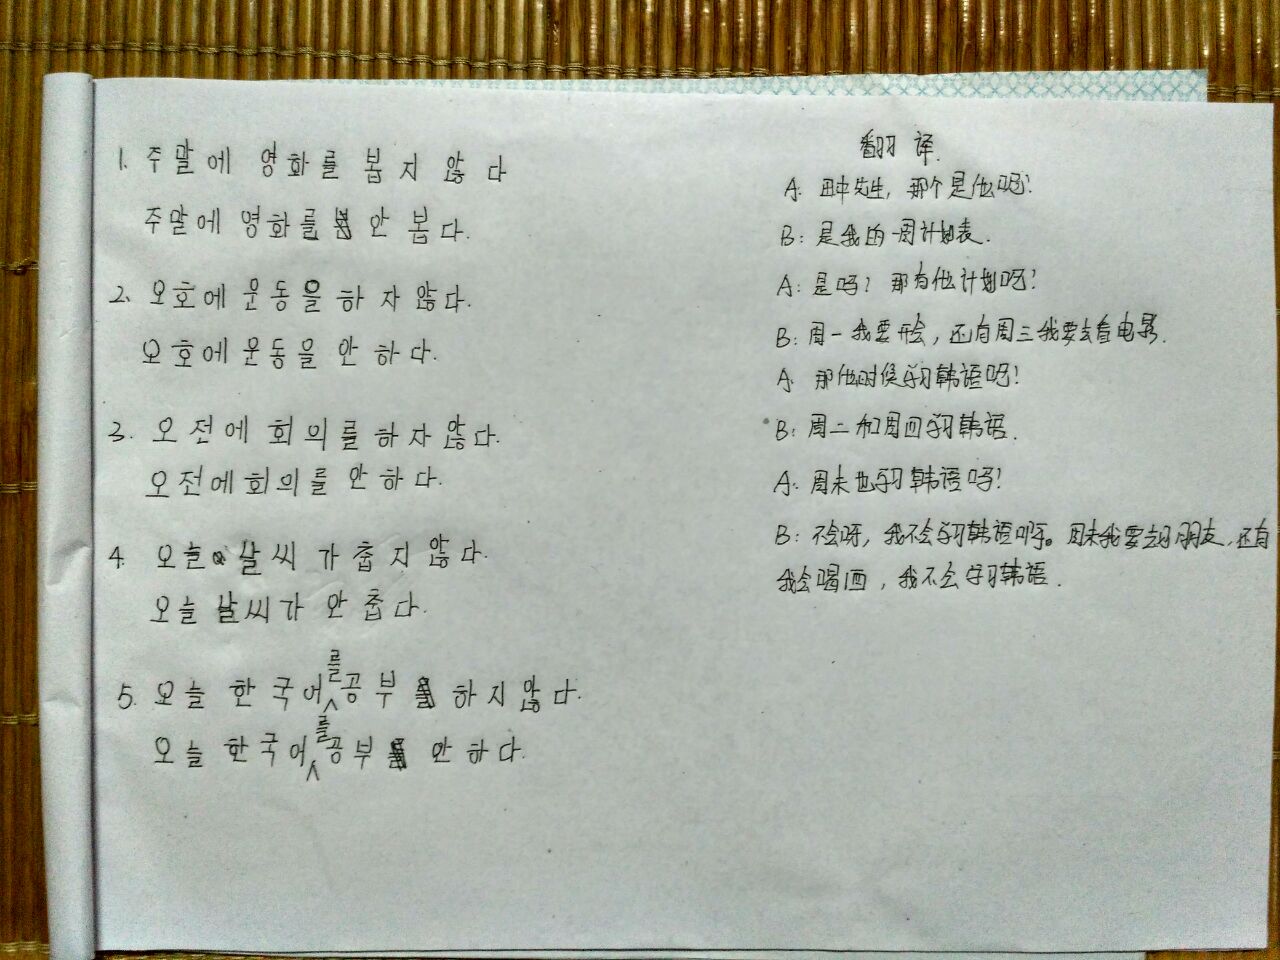 1. 주말에 영화를 봅지 않다
주말에 영화를 안 봅다.
2. 오호에 운동을 하자않다.
오호에 운동을 안 하다.
3. 오전에 회의를 하자않다.
오전에 회의를 안 하다.
4. 오늘 날씨가 춥지 않다.
오늘 날씨가 안 춥다.
5. 오늘 한국어를공부 하지않다.
오늘 한국어를공부 안 하다.
翻译.
A. 田中先生, 那个是什么吗?
B: 是我的一周计划表.
A: 是吗? 那有什么计划吗?
B: 周一我要开会, 还有周三我要去看电影.
A. 那什么时候学习韩语吗?
B: 周二和周四学习韩语.
A. 周末也学习韩语吗?
B: 不会呀, 我不会学习韩语呀。周末我要去见朋友, 还有
我会喝酒, 我不会学习韩语.